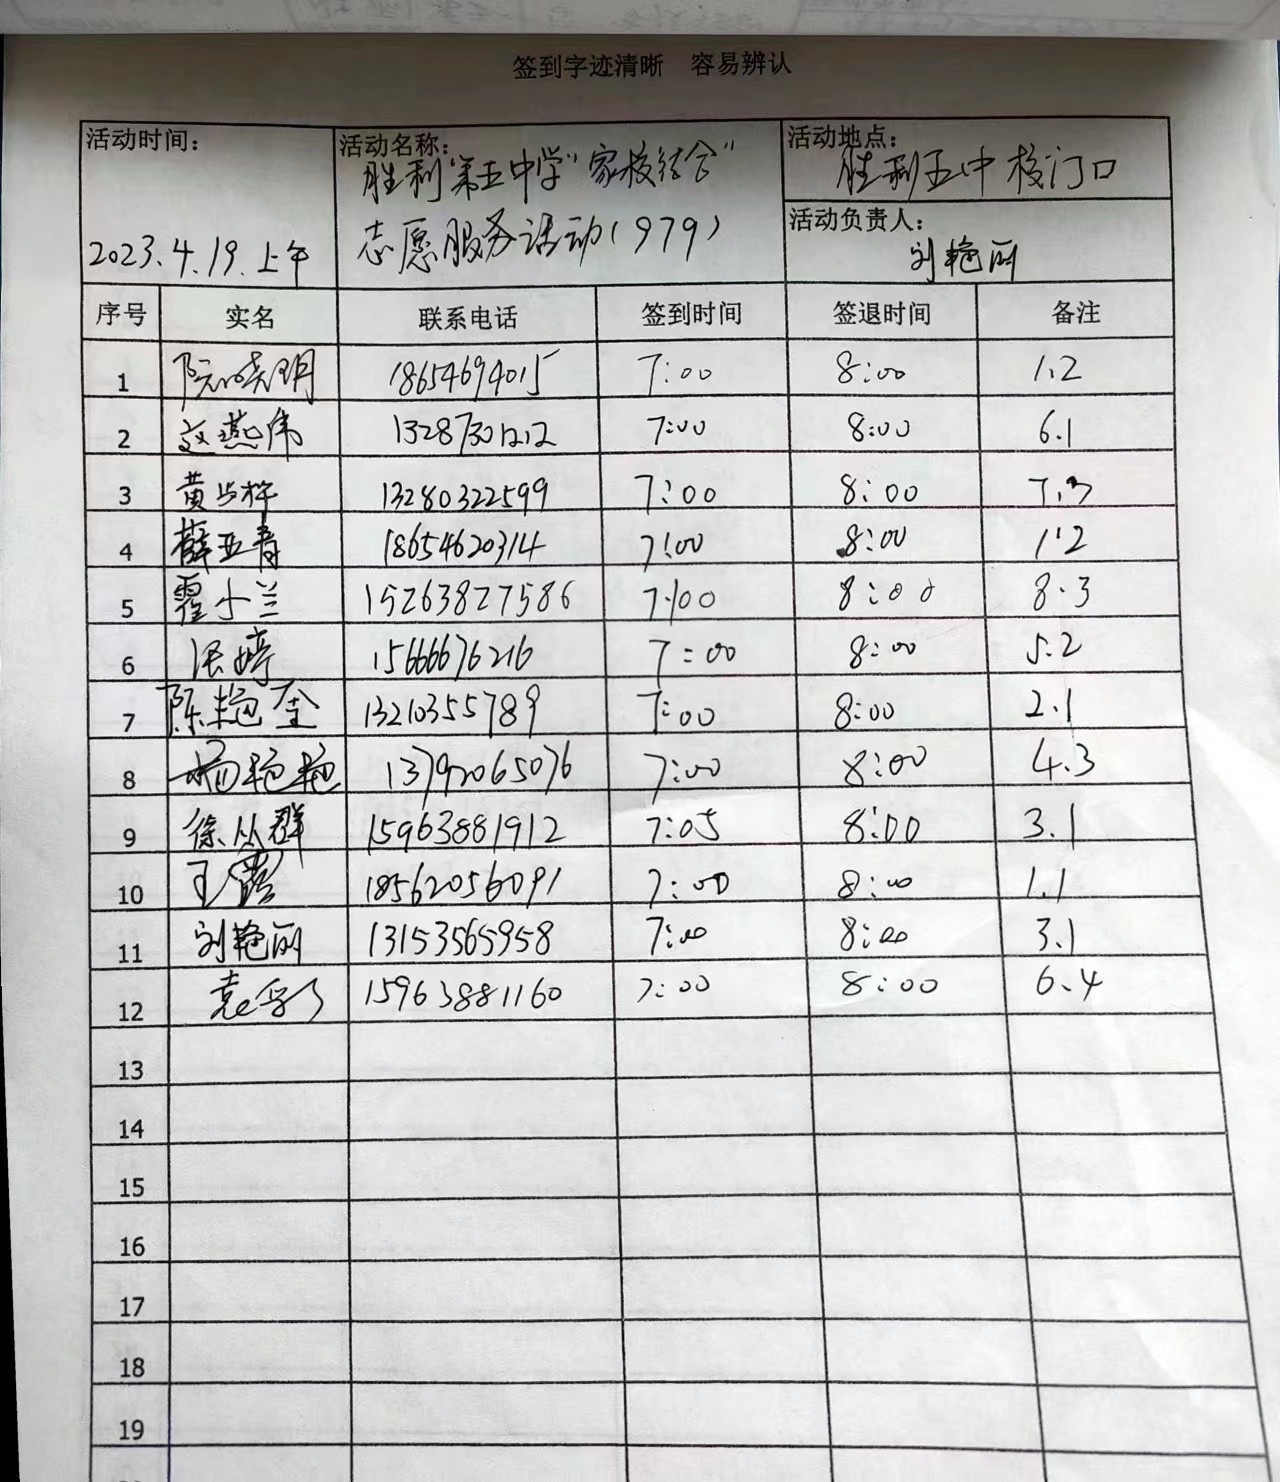 签到字迹清晰 容易辨认
活动时间: 2023.4.19.上午
活动名称: 胜利"第五中学"家校结合"
志愿服务活动(979)
活动地点: 胜利五中校门口
活动负责人: 刘艳丽
序号 实名 联系电话 签到时间 签退时间 备注
1 阮晓明 18654694015 7:00 8:00 1.2
2 燕伟 13287301212 7:00 8:00 6.1
3 黄 13280322599 7:00 8:00 7.3
4 薛亚青 18654620314 7:00 8:00 1.2
5 霍小兰 15263827586 7:00 8:00 8.3
6 张婷 15666676216 7:00 8:00 5.2
7 陈艳 13210355789 7:00 8:00 2.1
8 杨艳艳 13792065076 7:00 8:00 4.3
9 徐从群 15963881912 7:05 8:00 3.1
10 王霞 18562056091 7:00 8:00 1.1
11 刘艳丽 13153565958 7:00 8:00 3.1
12 袁 15963881160 7:00 8:00 6.4
13
14
15
16
17
18
19